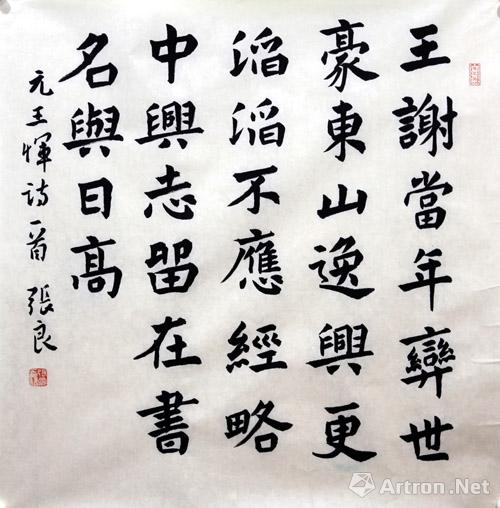 王謝當年奕世
豪東山逸興更
滔滔不應經略
中興志留在書
名與日高
元王惲诗一首 張良
Artron.Net